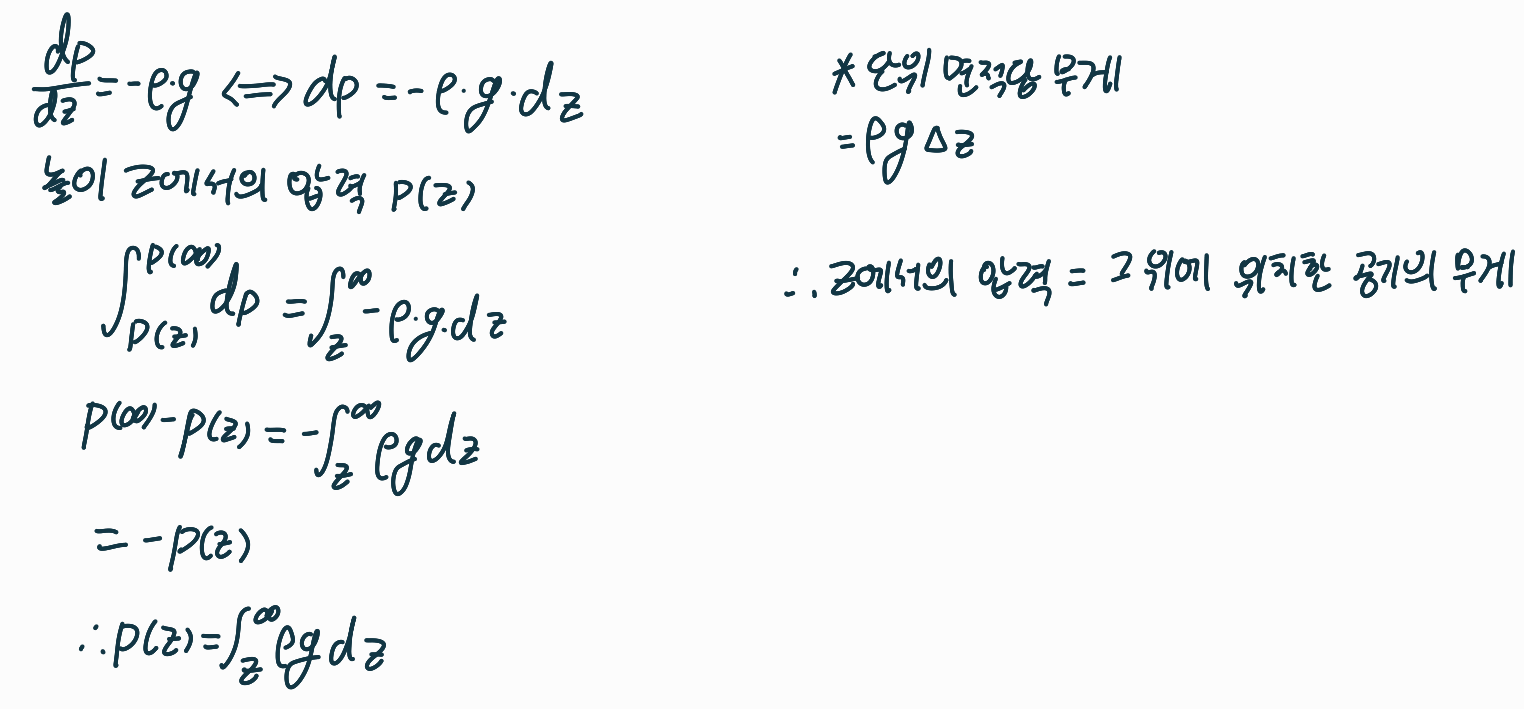 dp/dz = -ρ·g ⟺ dp = -ρ·g·dz
높이 z에서의 압력 P(z)
∫_{P(z)}^{P(∞)} dp = ∫_z^∞ -ρ·g·dz
P(∞) - P(z) = -∫_z^∞ ρg dz
= -P(z)
∴ P(z) = ∫_z^∞ ρg dz
* 단위 면적당 무게
= ρgΔz
∴ z에서의 압력 = 그 위에 위치한 공기의 무게